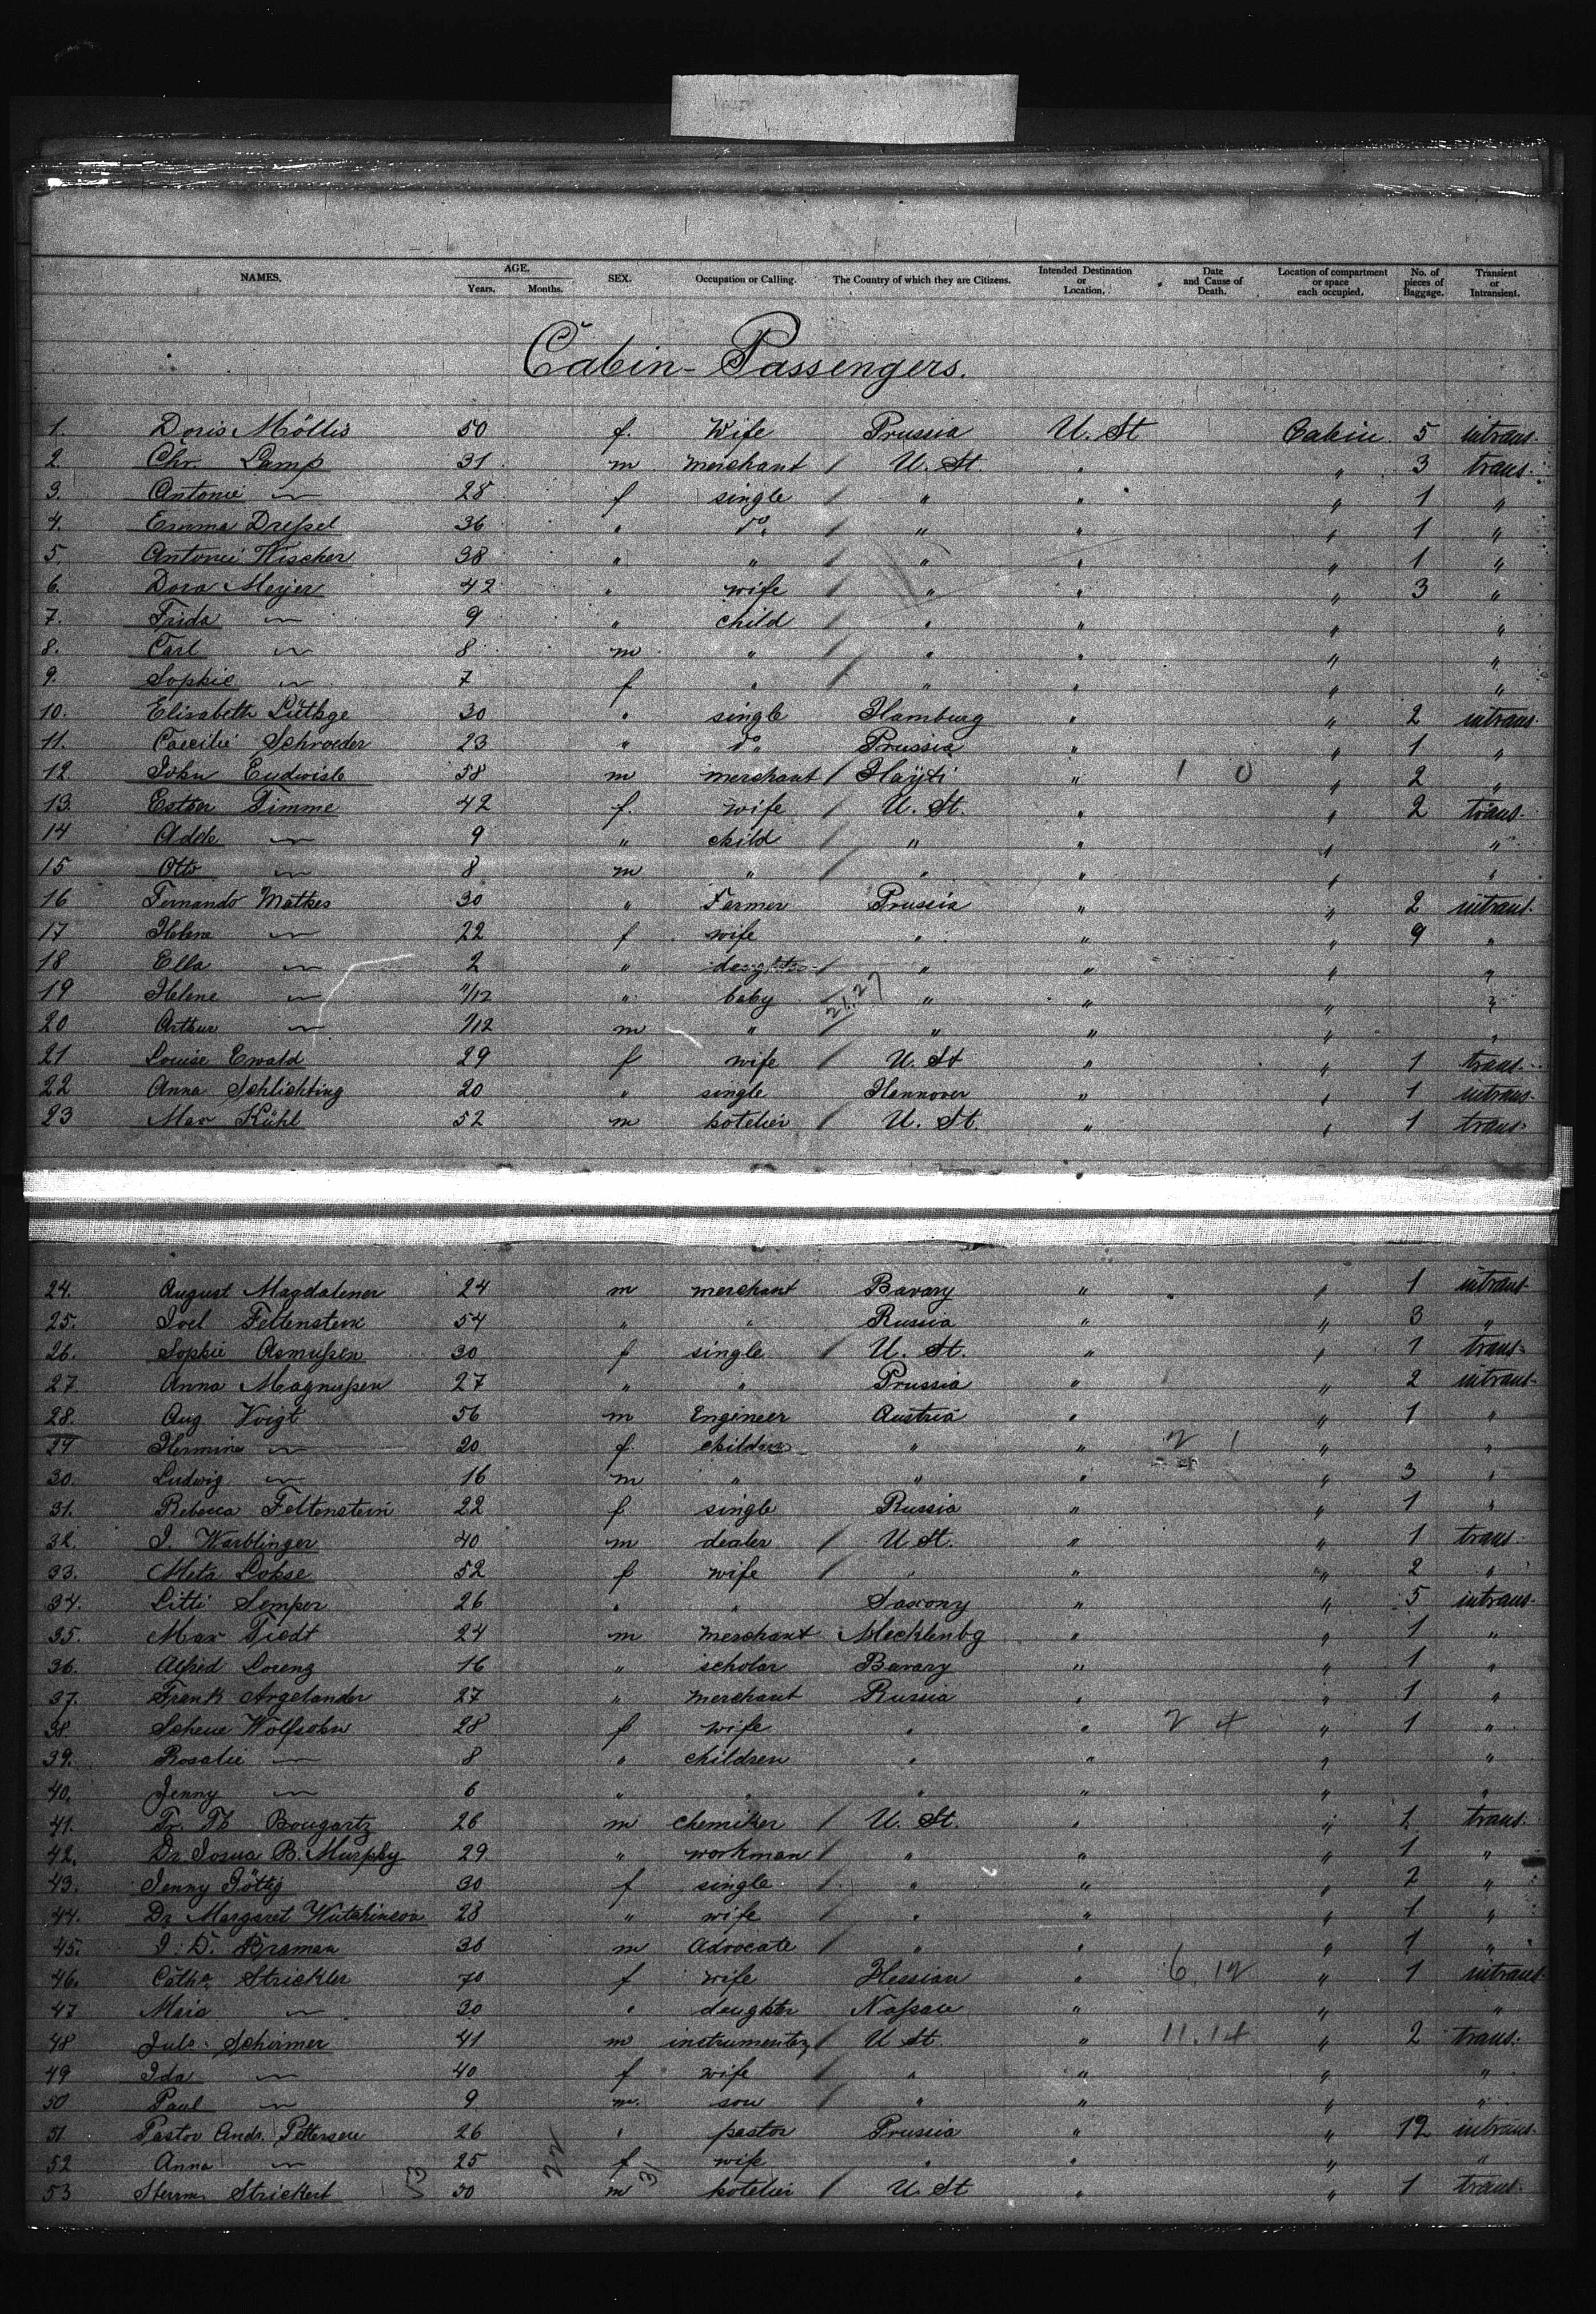 NAMES. AGE. Years. Months. SEX. Occupation or Calling. The Country of which they are Citizens. Intended Destination or Location. Date and Cause of Death. Location of compartment or space each occupied. No. of pieces of Baggage. Transient or Intransient.
Cabin-Passengers.
1. Doris Möllis 50 f. Wife Prussia U. St Cabin 5 intrans.
2. Chr. Lamp 31 m merchant / U. St. " " 3 trans.
3. Antonie 〃 28 f single / " " " 1 "
4. Emma Dreſsel 36 " do. / " " " 1 "
5. Antonie Wischer 38 " " / " " " 1 "
6. Dora Meyer 42 " wife / " " " 3 "
7. Frida 〃 9 " child / " " " "
8. Carl 〃 8 m " / " " " "
9. Sophie 〃 7 f " / " " " "
10. Elisabeth Lüthge 30 " single Hamburg " " 2 intrans.
11. Caecilie Schroeder 23 " do. Prussia " " 1 "
12. John 58 m merchant / Hayti " 1 0 " 2 "
13. Esther Timme 42 f. wife / U. St. " " 2 trans.
14 Adele 〃 9 " child / " " " "
15 Otto 〃 8 m " / " " " "
16 Fernando Mathes 30 " Farmer Prussia " " 2 intrans.
17 Helene 〃 22 f wife " " " 9 "
18 Ella 〃 2 " daughter " " " "
19 Helene 〃 11/12 " baby " " " "
20 Arthur 〃 1/12 m " " " " "
21 Louise Ewald 29 f wife / U. St " " 1 trans.
22 Anna Schlichting 20 " single Hannover " " 1 intrans.
23 Max Kühl 52 m hotelier / U. St. " " 1 trans.
24. August Magdalener 24 m merchant Bavary " " 1 intrans.
25. Joel Feltenstein 54 " " Russia " " 3 "
26. Sophie Asmuſsen 30 f single / U. St. " " 1 trans.
27. Anna Magnuſsen 27 " " Prussia " " 2 intrans.
28. Aug Voigt 56 m Engineer Austria " " 1 "
29 Hermine 〃 20 f. children " " 2 1 " "
30. Ludwig 〃 16 m " " " " 3 "
31. Rebecca Feltenstein 22 f single Russia " " 1 "
32. J. Warblinger 40 m dealer / U. St. " " 1 trans.
33. Meta Lohse 52 f wife / " " " 2 "
34. Litti Semper 26 " " Saxony " " 5 intrans.
35. Max Tiedt 24 m merchant Mecklenbg " " 1 "
36. Alfred Lorenz 16 " scholar Bavary " " 1 "
37. Frank Argelander 27 " merchant Russia " " 1 "
38. Scheue Wolfsohn 28 f wife " " 2 4 " 1 "
39. Rosalie 〃 8 " children " " " "
40. Jenny 〃 6 " " " " " "
41. Bougartz 26 m chemiker / U. St. " " 1 trans.
42. Dr. Josua B. Murphy 29 " workman / " " " 1 "
43. Jenny 30 f single / " " " 2 "
44. Dr. Margaret 28 " wife / " " " 1 "
45. J. D. Braman 36 m Advocate / " " " 1 "
46. Cath. Strickler 70 f wife Hessian " 6. 12 " 1 intrans.
47 〃 30 " daughter Naſsau " " "
48 Schirmer 41 m / U. St. " 11. 14 " 2 trans.
49 Ida 〃 40 f wife / " " " "
50 Paul 〃 9 m. son / " " " "
51. Pastor Andr. Pettersen 26 " pastor Prussia " " 12 intrans.
52 Anna 〃 25 f wife " " " "
53 Herm. Strickert 50 m hotelier / U. St " " 1 trans.